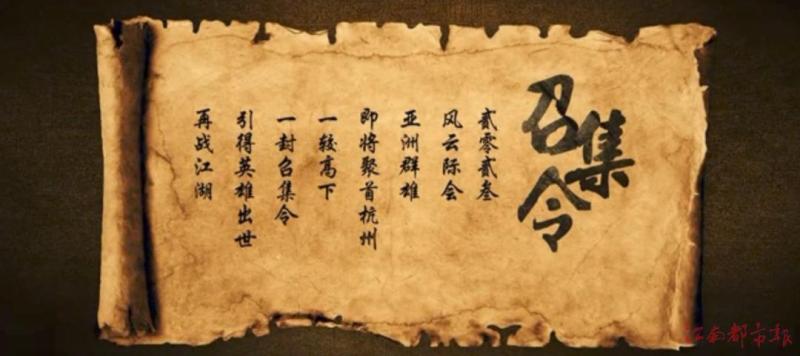 召集令
贰零贰叁
风云际会
亚洲群雄
即将聚首杭州
一较高下
一封召集令
引得英雄出世
再战江湖
江南都市报